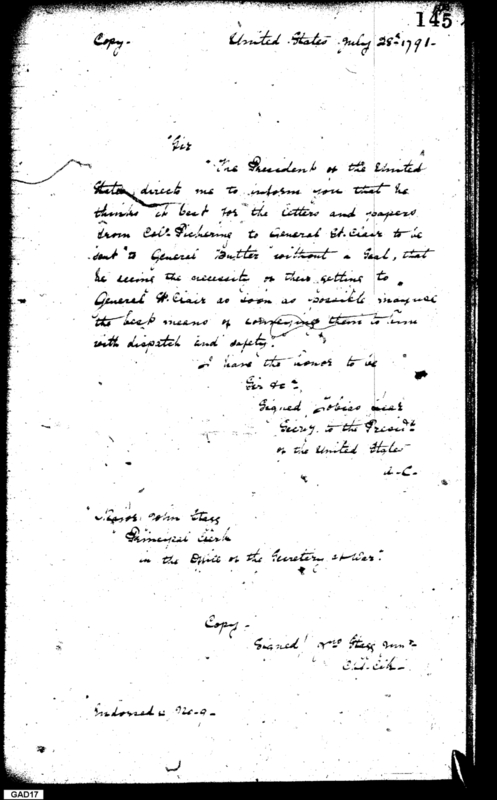 145
Copy - United States July 28th 1791 -
"Sir
"The President of the United
States direct me to inform you that he
thinks it best for the letters and papers
from Colo. Pickering to General St. Clair to be
sent to General Butler without a Seal, that
he seeing the necessity of their getting to
General St. Clair as soon as possible may use
the best means of conveying them to him
with dispatch and safety.
I have the honor to be
Sir &c
Signed Tobias Lear
Secrey. to the Presidt.
of the United States
Major John Stagg
Principal Clerk
in the Office of the Secretary at War.
Copy -
Signed Jno Stagg Junr
Chf. Clk -
Endorsed No. 9 -
GAD17